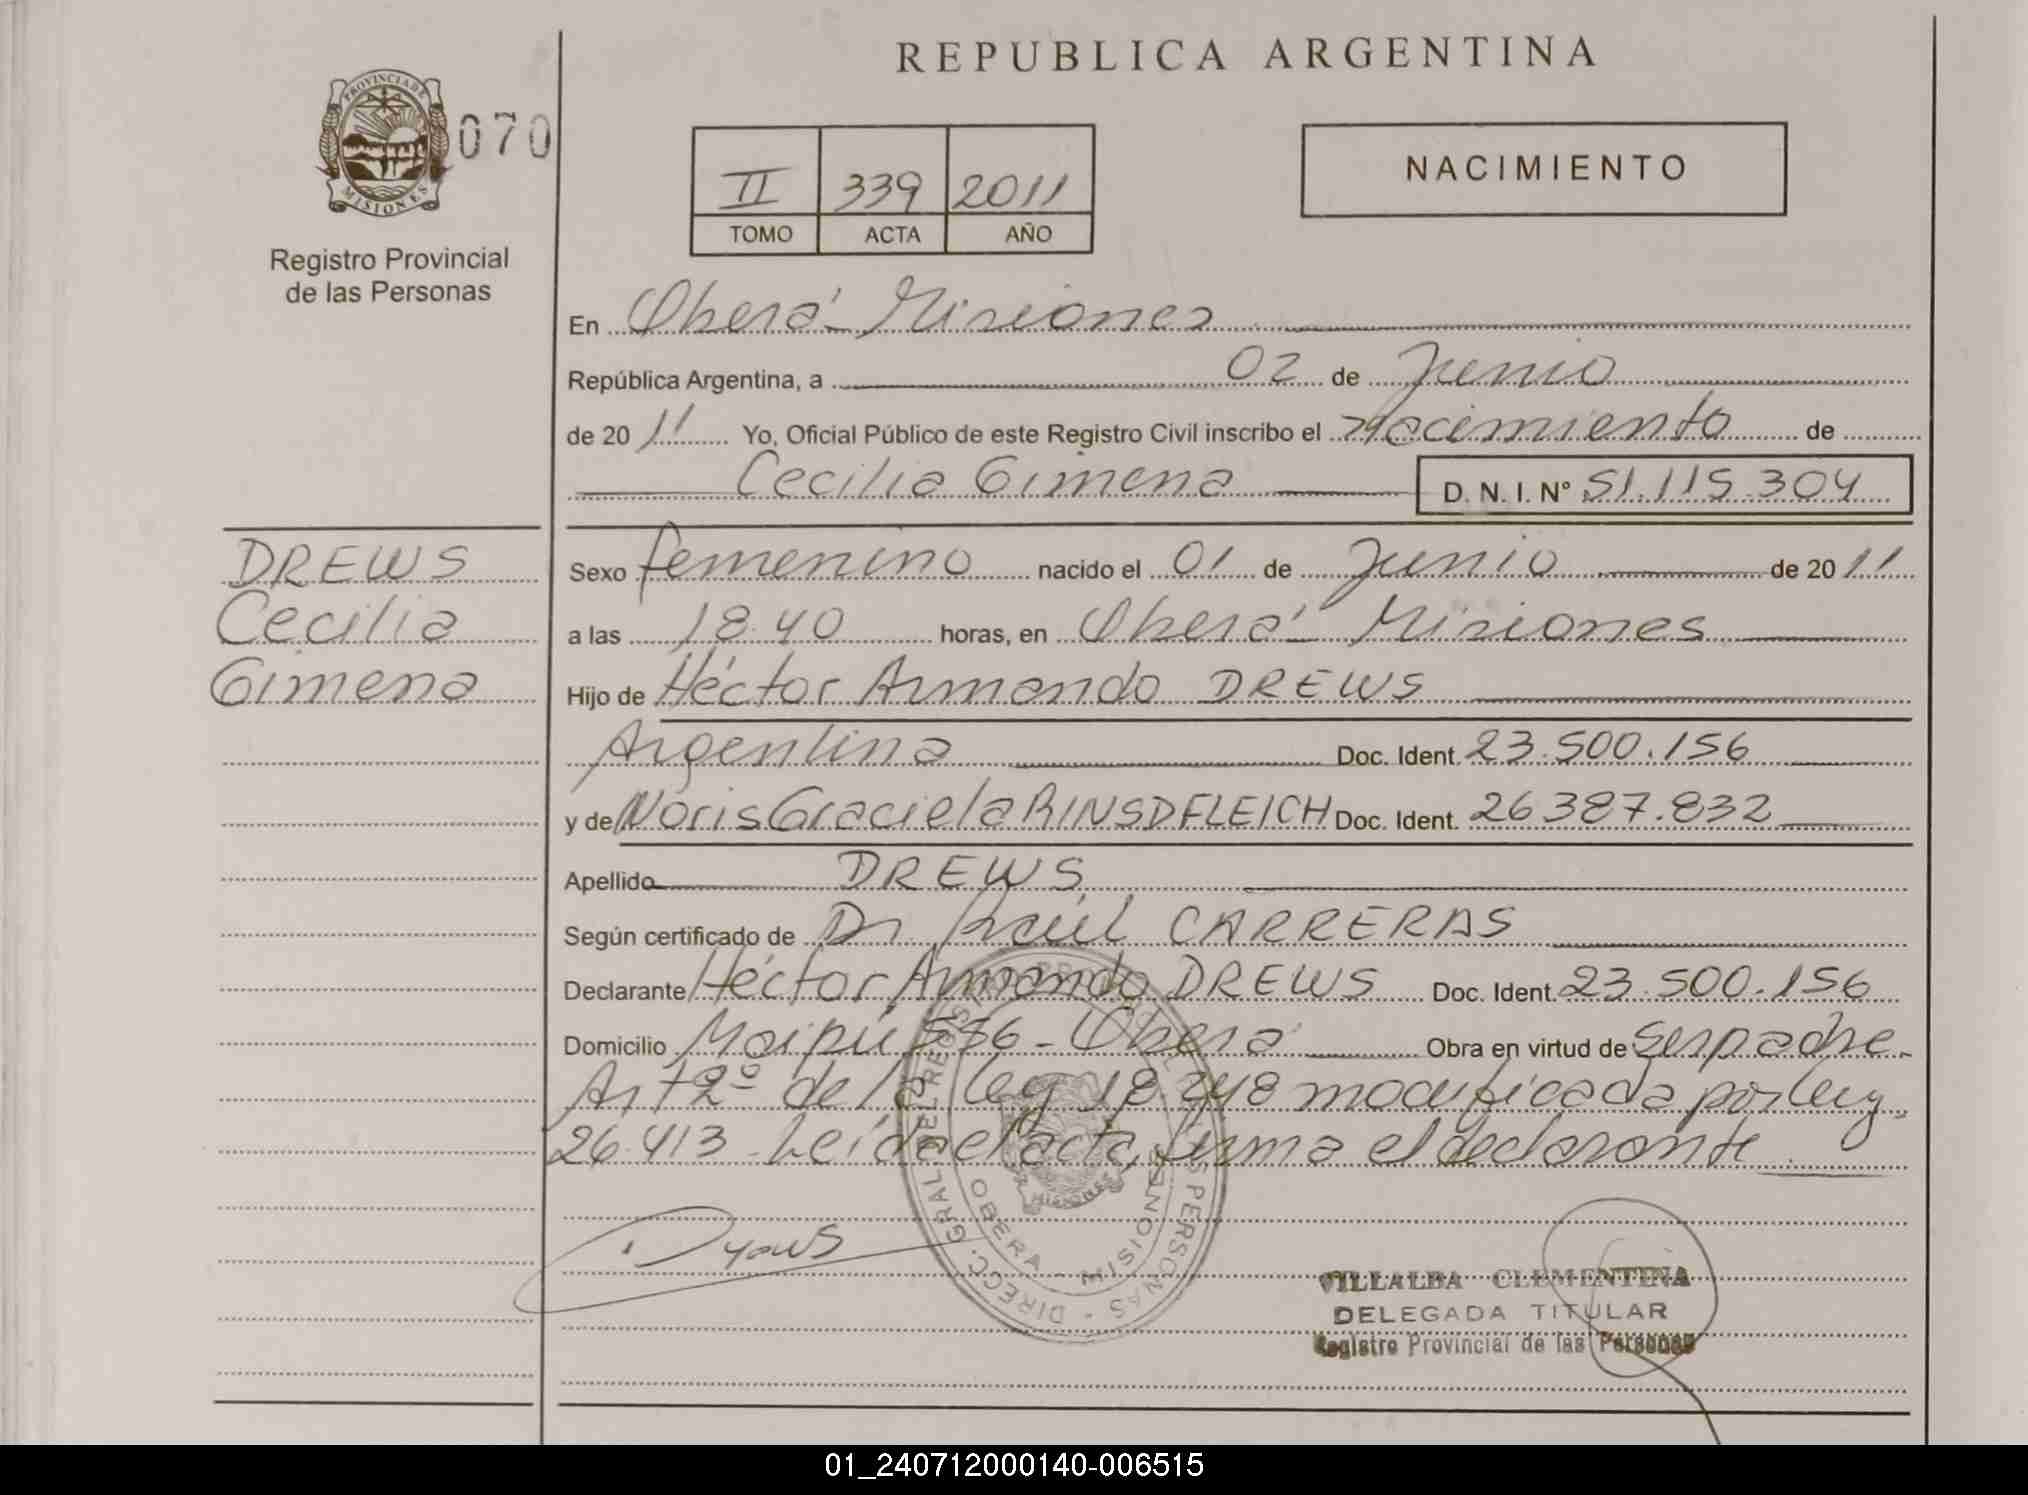 REPUBLICA ARGENTINA
PROVINCIA DE
MISIONES
070
Registro Provincial
de las Personas
II 339 2011
TOMO ACTA AÑO
NACIMIENTO
En Oberá Misiones
República Argentina, a 02 de Junio
de 2011 Yo, Oficial Público de este Registro Civil inscribo el nacimiento de
Cecilia Gimena D. N. I. Nº 51.115.304
DREWS
Cecilia
Gimena
Sexo femenino nacido el 01 de Junio de 2011
a las 18.40 horas, en Oberá Misiones
Hijo de Héctor Armando DREWS
Argentina Doc. Ident. 23.500.156
y de Noris Graciela RINSDFLEICH Doc. Ident. 26387.832
Apellido DREWS
Según certificado de Dr Raúl CARRERAS
Declarante Héctor Armando DREWS Doc. Ident. 23.500.156
Domicilio Maipú - Oberá Obra en virtud de Ser padre.
Art 2º de la ley 18.248 modificada por ley
26.413 - Leída el acta, firma el declarante
DIRECC. GRAL. DEL REGISTRO PERSONAS
OBERA - MISIONES
MISIONES
VILLALBA CLEMENTINA
DELEGADA TITULAR
Registro Provincial de las Personas
01_240712000140-006515